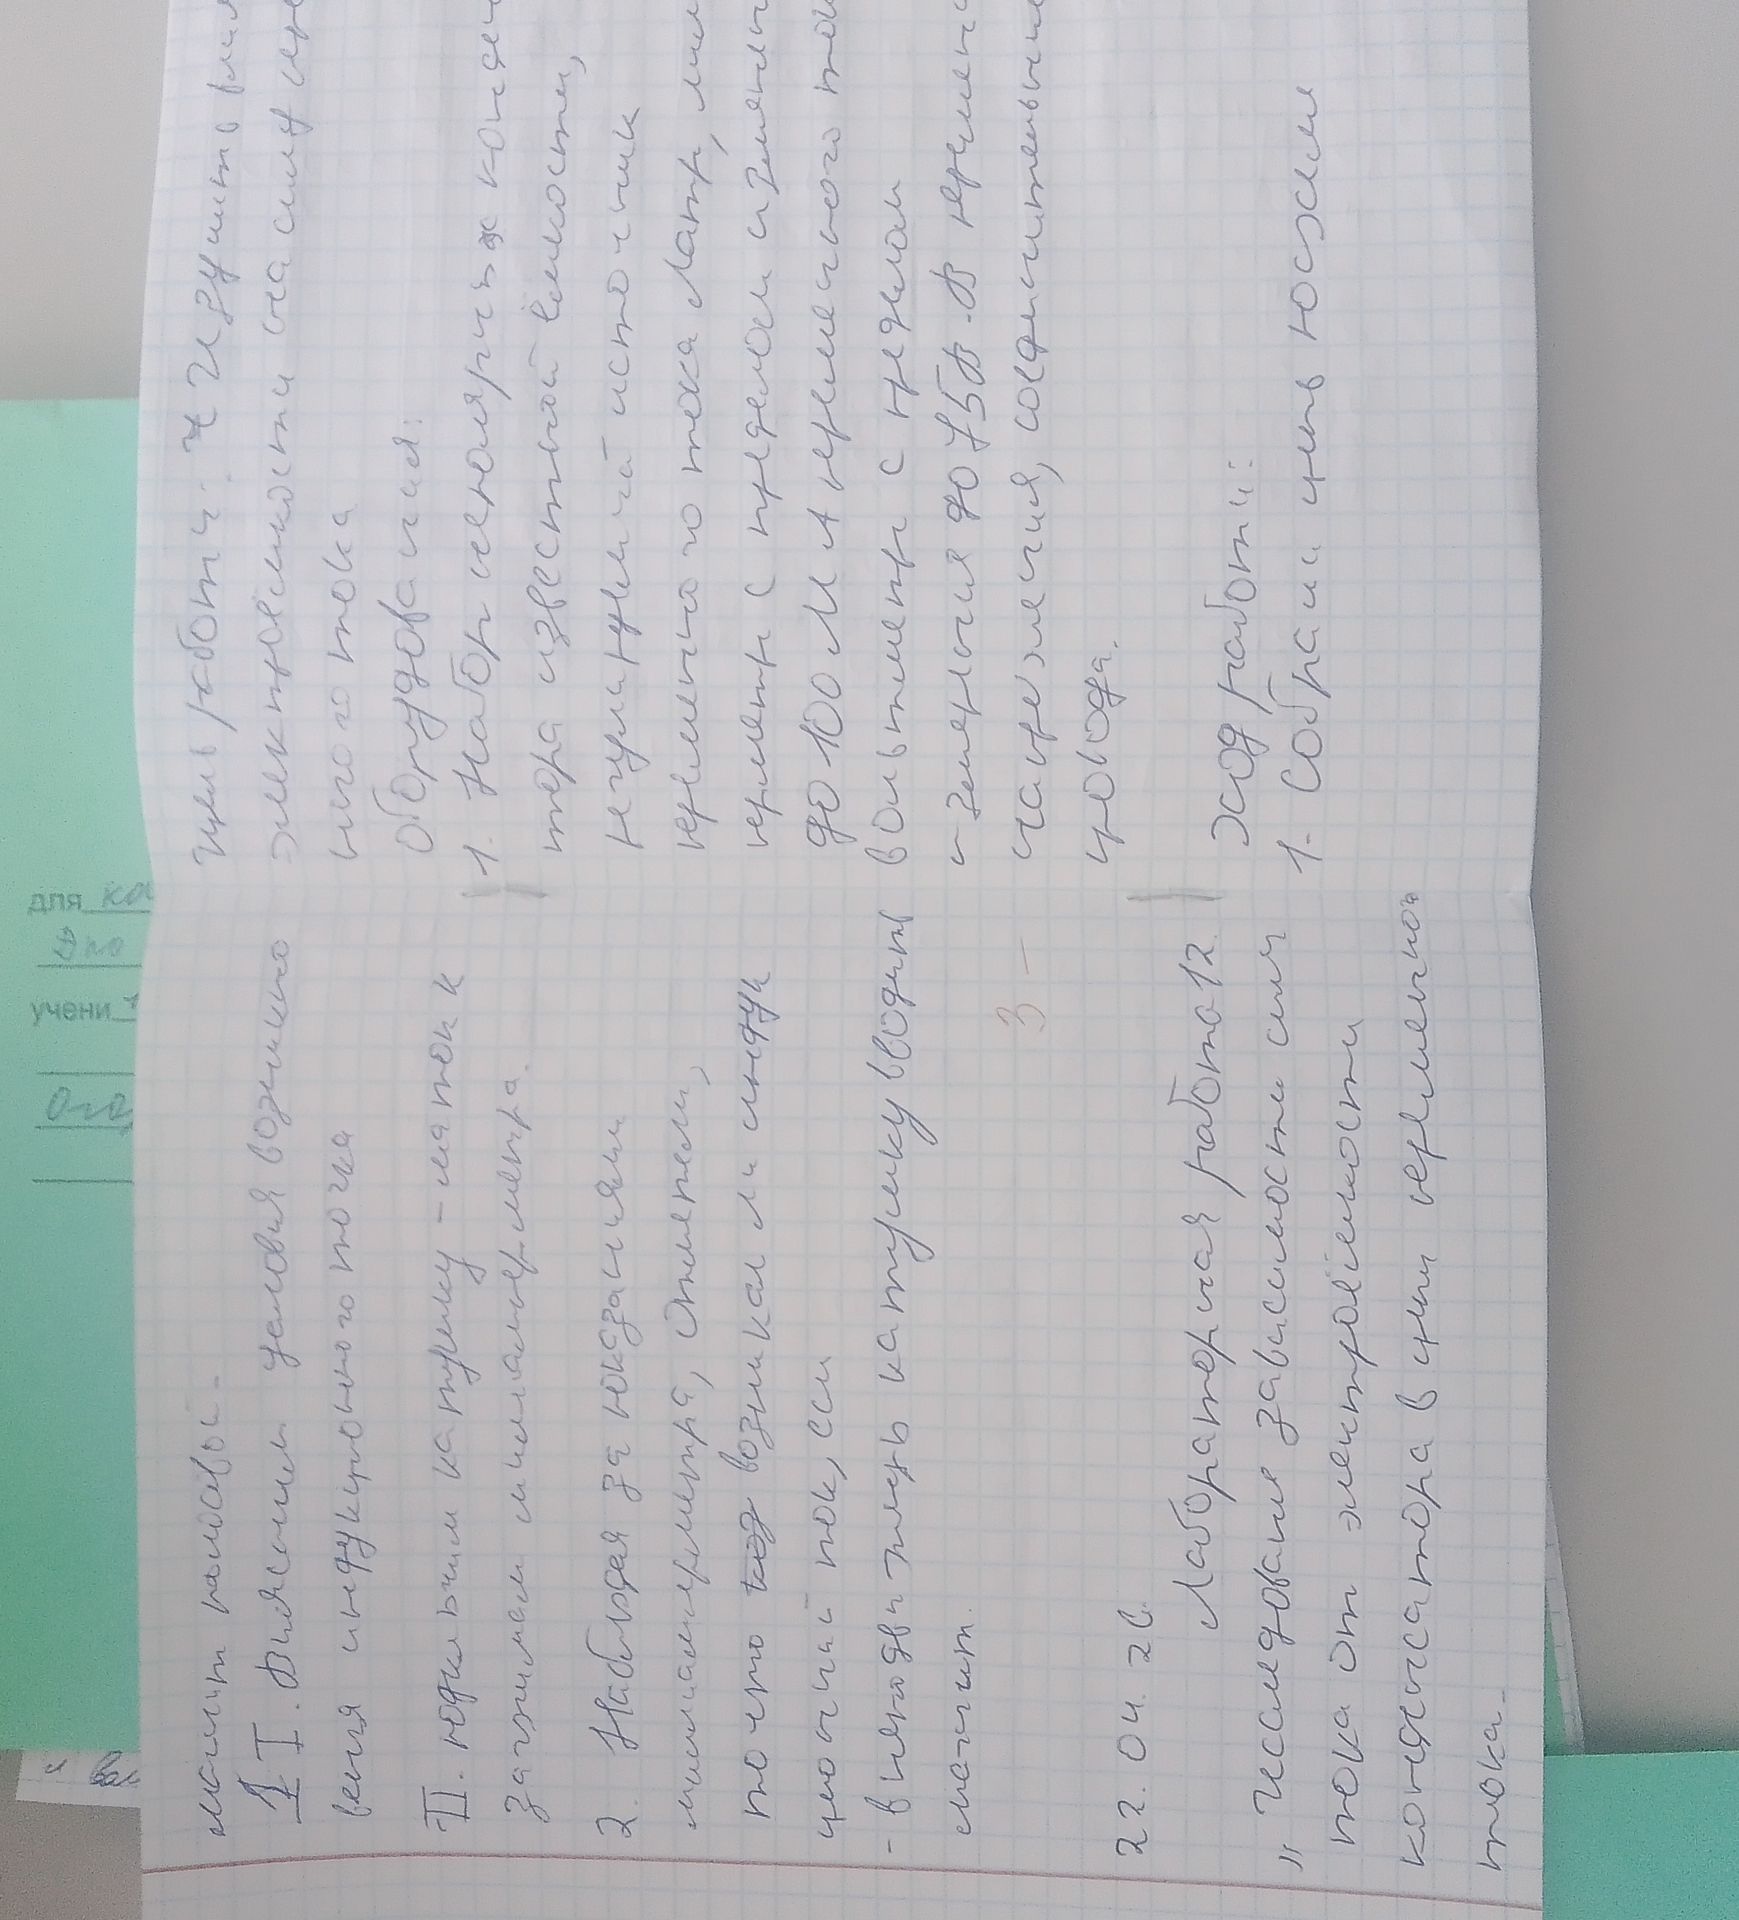 магнит полосовый.
1 I. Выясним условия возникно
вения индукционного тока
II. Подключим катушку-маток к
зажимам миллиамперметра.
2. Наблюдая за показаниями
миллиамперметра, отметим,
то что возникал ли индук
ционный ток, если
- в неподвижную катушку вводить
магнит.
3 -
22. 04. 26.
Лабораторная работа 12.
"Исследование зависимости силы
тока от электроёмкости
конденсатора в цепи переменного
тока.
Цель работы: Изучить влия
электроёмкости на силу пере
ного тока
Оборудования:
1. Набор неполярных конден
тора известной ёмкости,
регулируемый источник
переменного тока Латр, мил
перметр с пределом измерен
до 100 мА переменного ток
вольтметр с пределом
измерения до 75В. В перемен
напряжения, соединительны
провода.
Ход работы:
1. Собрали цепь
для
учени